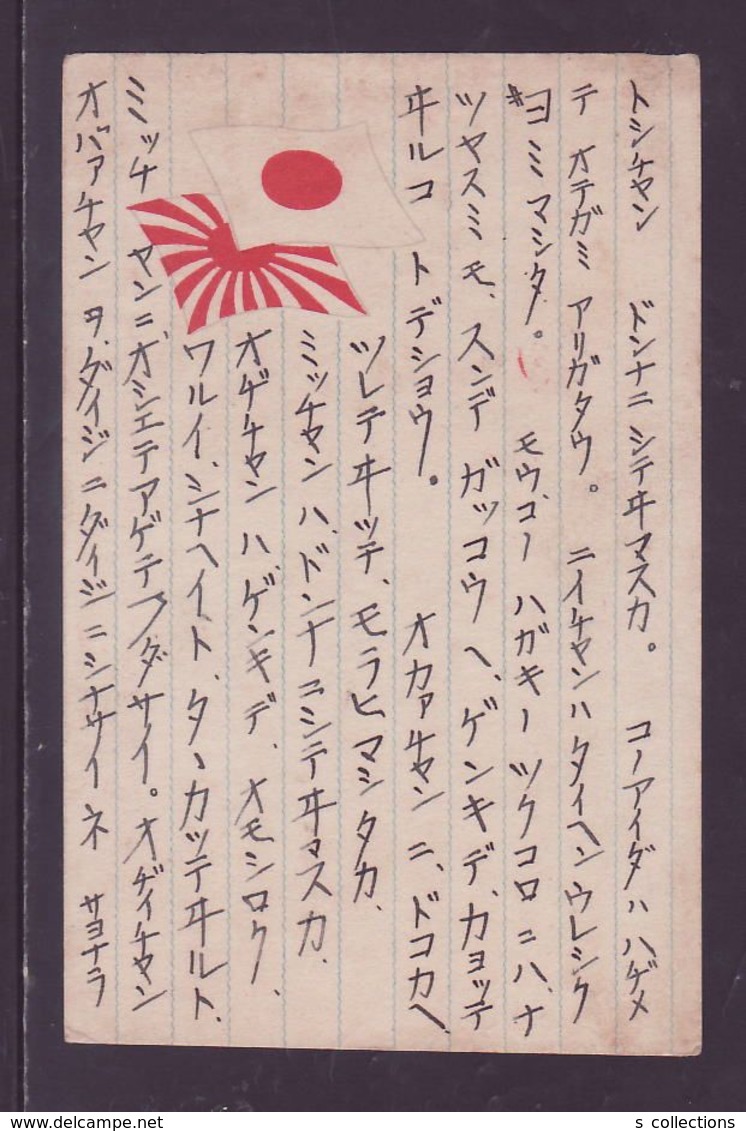 トシチヤン ドンナニシテヰマスカ。 コノアイダハハヂメ
テ オテガミ アリガタウ。 ニイチヤンハタイヘンウレシク
ヨミマシタ。 モウ、コノ ハガキノ ツクコロニハ、ナ
ツヤスミモ、スンデ ガツコウヘ、ゲンキデ、カヨツテ
ヰルコトデシヨウ。 オカアチヤンニ、ドコカヘ、
ツレテヰツテ、モラヒマシタカ、
ミツチヤンハ、ドンナニシテヰマスカ、
オヂチヤンハ、ゲンキデ、オモシロク、
ワルイ、シナヘイト、タヽカツテヰルト、
ミツチヤンニ、オシエテアゲテクダサイ。オヂイチヤン
オバアチヤンヲ、ダイジニダイジニシナサイネ サヨナラ
s collections